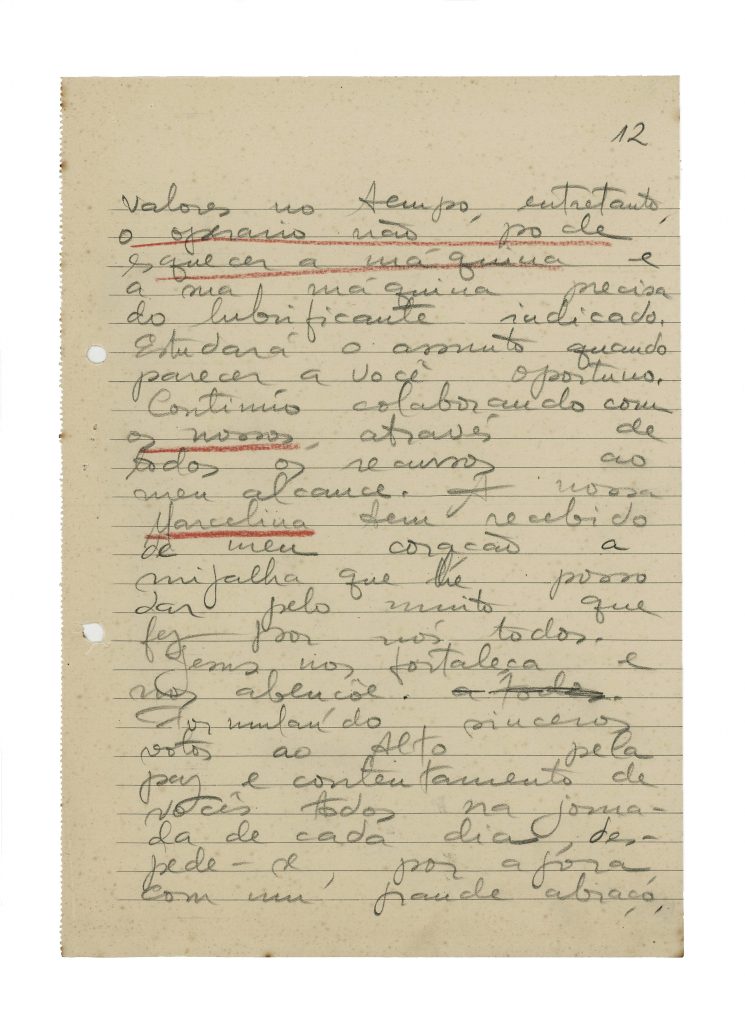 12
valores no tempo, entretanto,
o operario não pode
esquecer a máquina e
a sua máquina precisa
do lubrificante indicado.
Estudará o assunto quando
parecer a você oportuno.
Continúo colaborando com
os nossos, através de
todos os recursos ao
meu alcance. A nossa
Marcelina tem recebido
de meu coração a
migalha que lhe posso
dar pelo muito que
fez por nós todos.
Jesus nos fortaleça e
nos abençõe. a todos.
Formulando sinceros
votos ao Alto pela
paz e contentamento de
vocês todos na jorna-
da de cada dia, des-
pede-se, por agóra,
com um grande abraço,